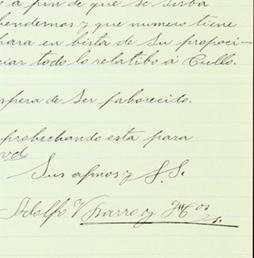 a fin de que se sirba
bendernos y que numero tiene
para en bista de Su propoci-
ciar todo lo relatibo á Cullo.
espera de Ser faborecido.
probechando esta para
Sus afmos y S. S.
Adolfo Ybarra y Hnos